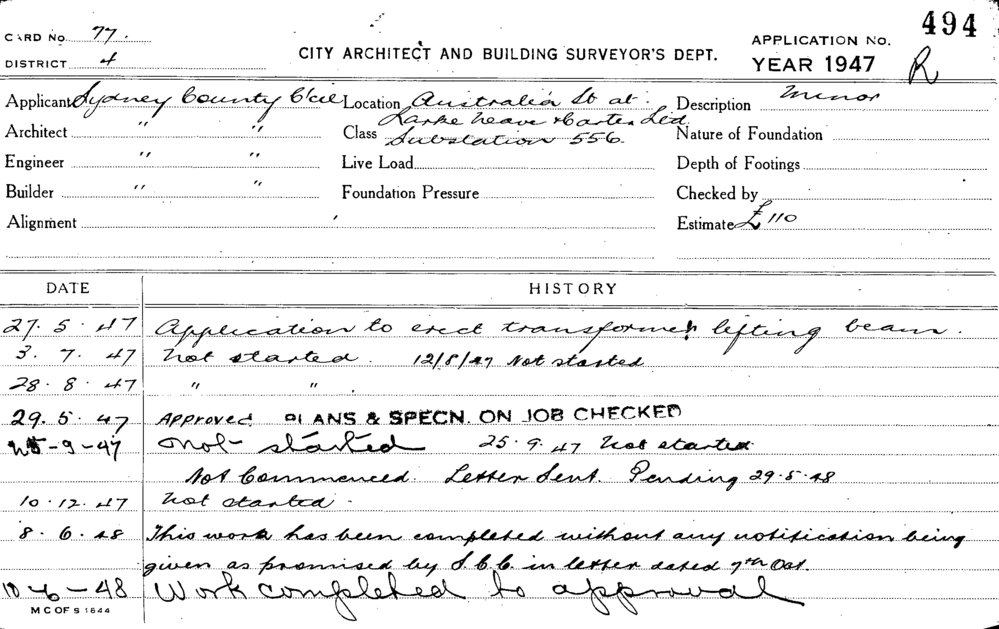 494
CARD No. 77.
DISTRICT 4
CITY ARCHITECT AND BUILDING SURVEYOR'S DEPT.
APPLICATION No.
YEAR 1947 R
Applicant Sydney County C'cil Location Australia St at Description Minor
Larke Neave & Carter Ltd
Architect " " Class Substation 556. Nature of Foundation
Engineer " " Live Load Depth of Footings
Builder " " Foundation Pressure Checked by
Alignment Estimate £110
DATE HISTORY
27. 5. 47 Application to erect transformer lifting beam.
3. 7. 47 Not started. 12/8/47 Not started
28. 8. 47 " "
29. 5. 47 Approved PLANS & SPECN. ON JOB CHECKED
-9-47 Not started 25. 9. 47 Not started
Not Commenced. Letter Sent. Pending 29-5-48
10. 12. 47 Not started.
8. 6. 48 This work has been completed without any notification being
given as promised by S.C.C. in letter dated 7th Oct.
10-6-48 Work completed to approval
M C OF S 1644